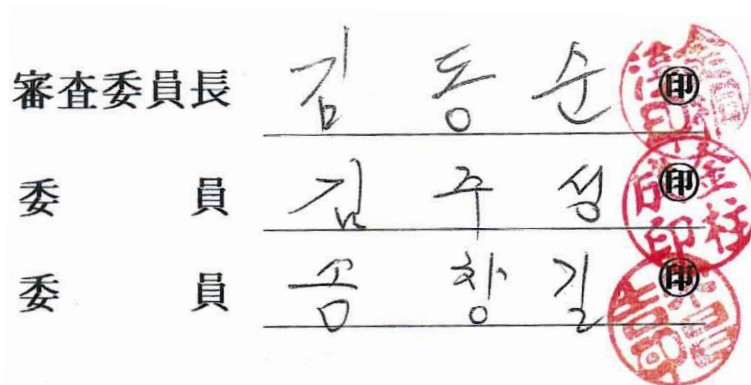 審査委員長 김 동 순 ㊞
委 員 김 주 성 ㊞
委 員 송 창 길 ㊞